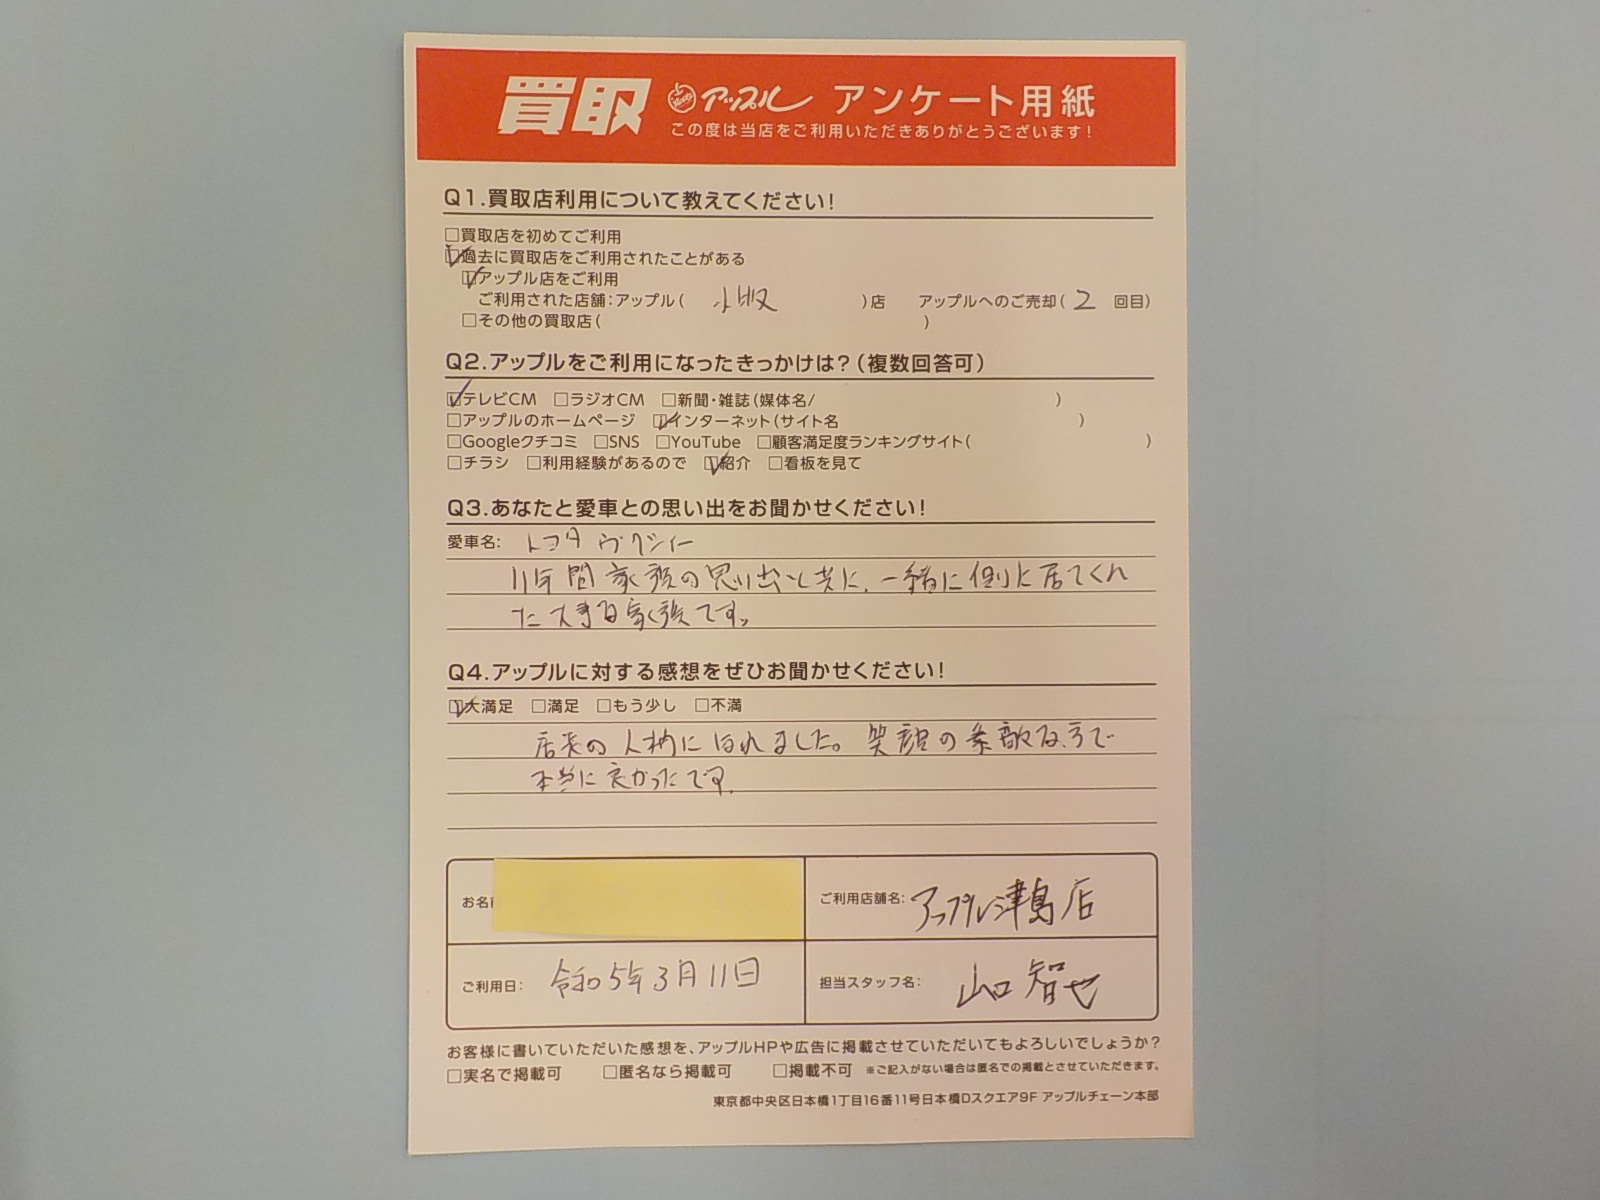 買取 アップル アンケート用紙
この度は当店をご利用いただきありがとうございます！
Q1.買取店利用について教えてください！
□買取店を初めてご利用
☑過去に買取店をご利用されたことがある
☑アップル店をご利用
ご利用された店舗：アップル（ ）店 アップルへのご売却（ 2 回目）
□その他の買取店（ ）
Q2.アップルをご利用になったきっかけは？（複数回答可）
☑テレビCM □ラジオCM □新聞・雑誌（媒体名/ ）
□アップルのホームページ ☑インターネット（サイト名 ）
□Googleクチコミ □SNS □YouTube □顧客満足度ランキングサイト（ ）
□チラシ □利用経験があるので ☑紹介 □看板を見て
Q3.あなたと愛車との思い出をお聞かせください！
愛車名： トヨタ ヴォクシィー
11年間家族の思い出と共に、一緒に側に居てくれ
た大事な家族です。
Q4.アップルに対する感想をぜひお聞かせください！
☑大満足 □満足 □もう少し □不満
店長の人柄にほれました。笑顔の素敵な方で
本当に良かったです。
お名前
ご利用店舗名： アップル津島店
ご利用日： 令和5年3月11日
担当スタッフ名： 山口 智也
お客様に書いていただいた感想を、アップルHPや広告に掲載させていただいてもよろしいでしょうか？
□実名で掲載可 □匿名なら掲載可 □掲載不可 ※ご記入がない場合は匿名での掲載とさせていただきます。
東京都中央区日本橋1丁目16番11号日本橋Dスクエア9F アップルチェーン本部